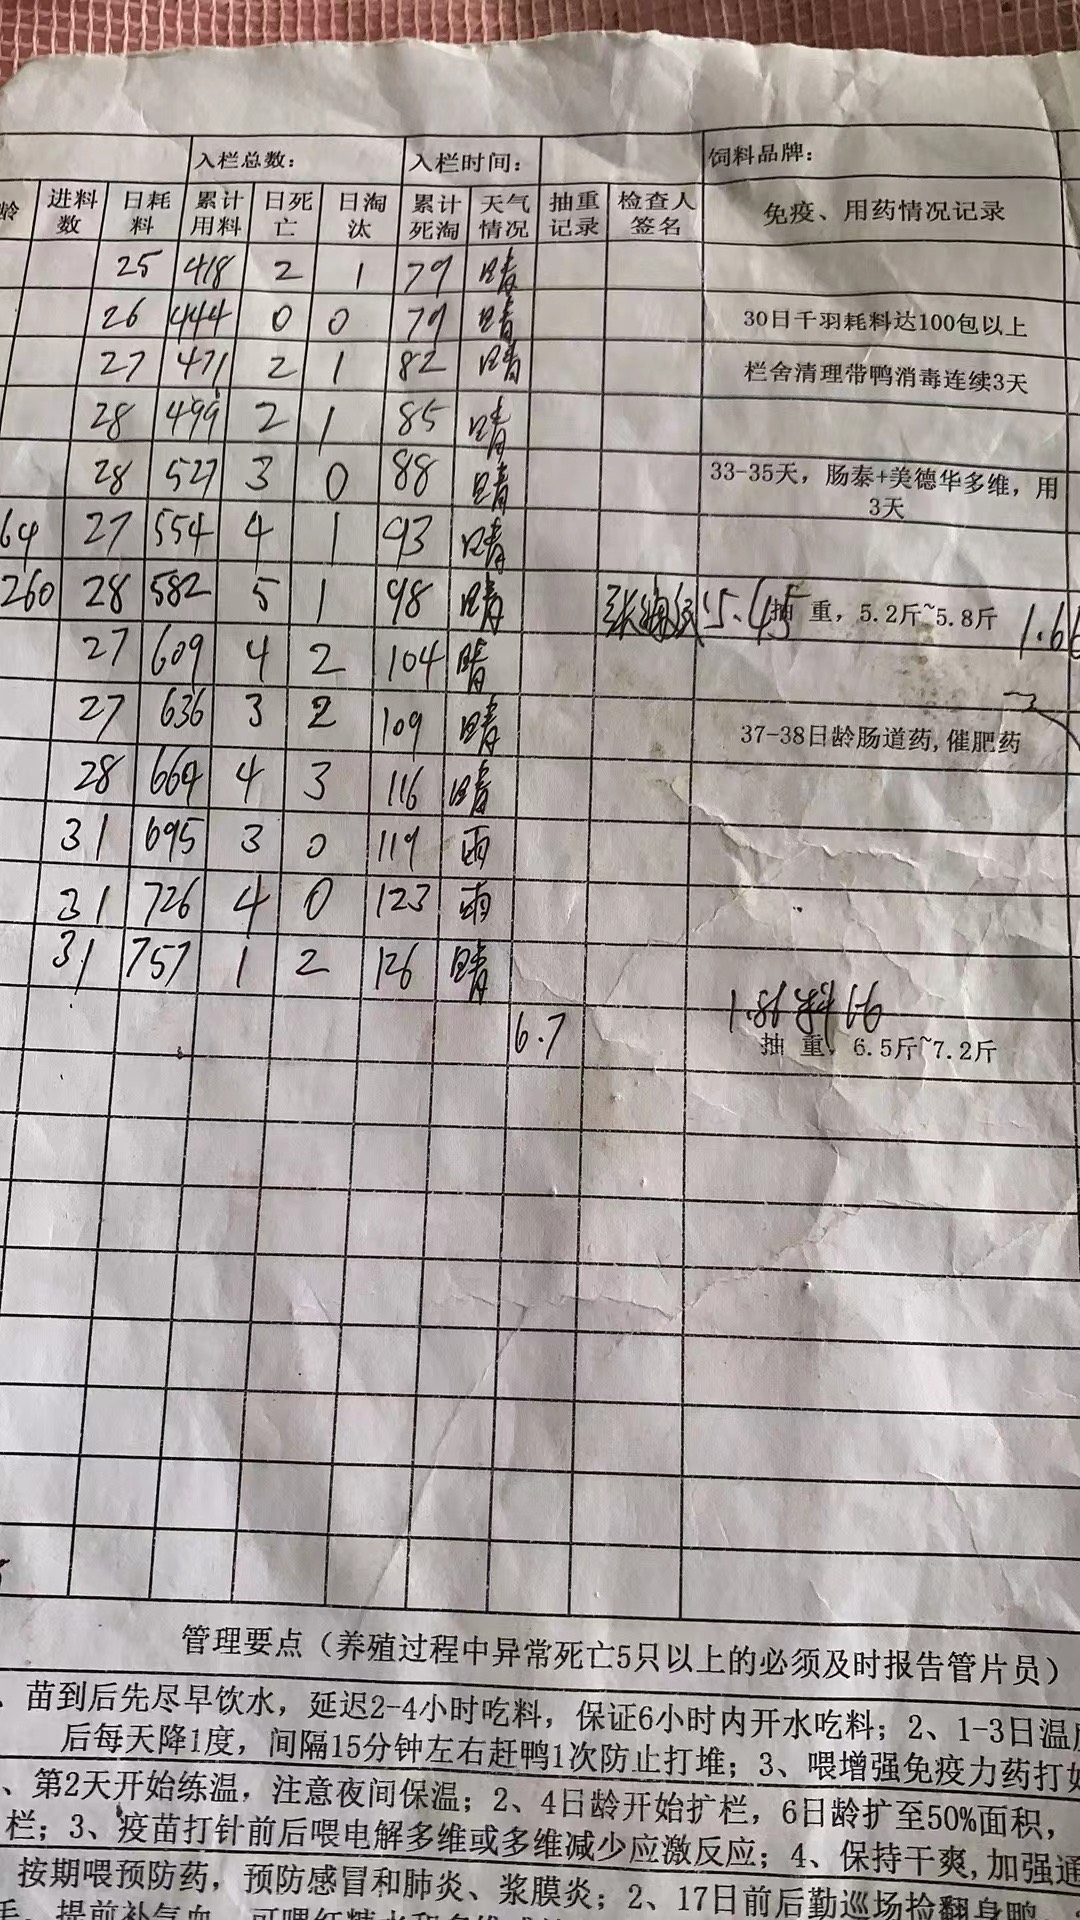 入栏总数： 入栏时间： 饲料品牌：
龄 进料数 日耗料 累计用料 日死亡 日淘汰 累计死淘 天气情况 抽重记录 检查人签名 免疫、用药情况记录
25 418 2 1 79 晴
26 444 0 0 79 晴 30日千羽耗料达100包以上
27 471 2 1 82 晴 栏舍清理带鸭消毒连续3天
28 499 2 1 85 晴
28 527 3 0 88 晴 33-35天，肠泰+美德华多维，用3天
64 27 554 4 1 93 晴
260 28 582 5 1 98 晴 5.45 抽 重，5.2斤~5.8斤 1.66
27 609 4 2 104 晴
27 636 3 2 109 晴 37-38日龄肠道药,催肥药
28 664 4 3 116 晴
31 695 3 0 119 雨
31 726 4 0 123 雨
31 757 1 2 126 晴
6.7 1.86 料 抽 重，6.5斤~7.2斤
管理要点（养殖过程中异常死亡5只以上的必须及时报告管片员）
、苗到后先尽早饮水，延迟2-4小时吃料，保证6小时内开水吃料；2、1-3日温
后每天降1度，间隔15分钟左右赶鸭1次防止打堆；3、喂增强免疫力药打
、第2天开始练温，注意夜间保温；2、4日龄开始扩栏，6日龄扩至50%面积，
栏；3、疫苗打针前后喂电解多维或多维减少应激反应；4、保持干爽,加强通
按期喂预防药，预防感冒和肺炎、浆膜炎；2、17日前后勤巡场捡翻身鸭
提前补气血